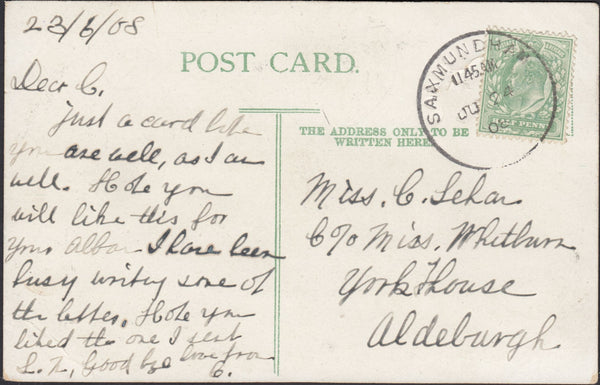 23/6/08
POST CARD.
Dear C.
Just a card
you are well, as I am
well. Hope you
will like this for
your I have been
busy writing some of
the letters. Hope you
liked the one I sent
Good bye love from
THE ADDRESS ONLY TO BE
WRITTEN HERE
SAXMUNDHAM
11.45 AM
HALF PENNY
Miss. C.
C/o Miss. Whitburn
York House
Aldeburgh